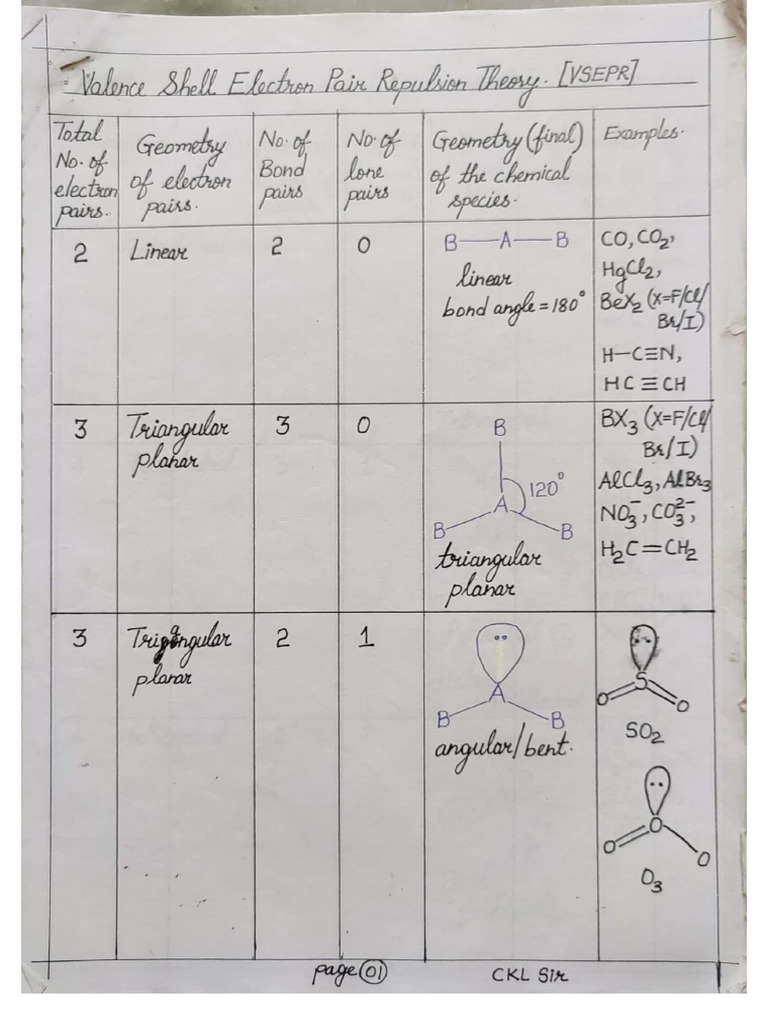 Valence Shell Electron Pair Repulsion Theory. [VSEPR]
Total
No. of
electron
pairs.
Geometry
of electron
pairs.
No. of
Bond
pairs
No. of
lone
pairs
Geometry (final)
of the chemical
species.
Examples.
2
Linear
2
0
B—A—B
linear
bond angle = 180°
CO, CO₂,
HgCl₂,
BeX₂ (X=F/Cl/
Br/I)
H—C≡N,
HC≡CH
3
Triangular
planar
3
0
B
120°
A
B B
triangular
planar
BX₃ (X=F/Cl/
Br/I)
AlCl₃, AlBr₃
NO₃⁻, CO₃²⁻,
H₂C=CH₂
3
Triangular
planar
2
1
A
B B
angular/bent.
S
O O
SO₂
O
O O
O₃
page 01
CKL Sir